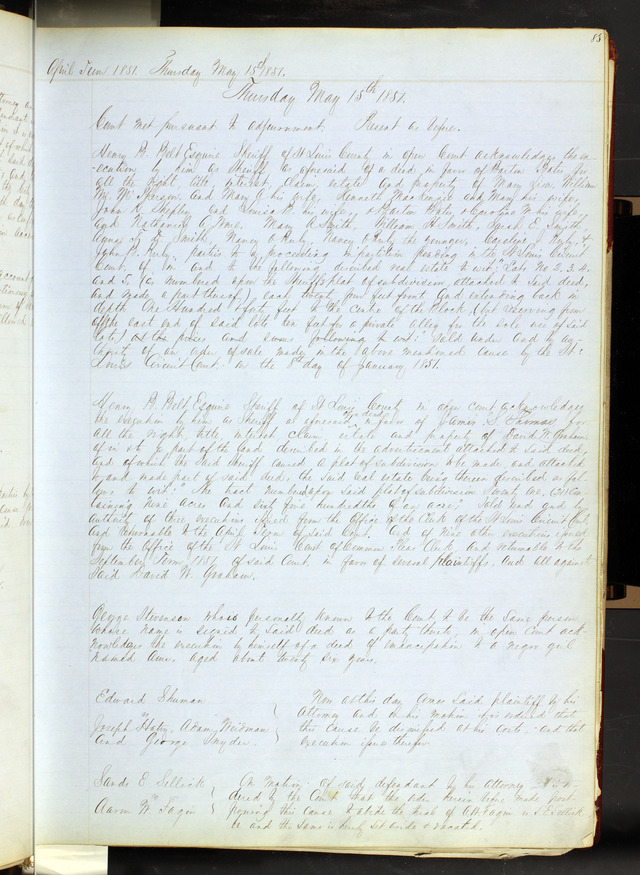 85
April Term 1851. Thursday May 15th 1851.
Thursday May 15th 1851.
Court met pursuant to adjournment. Present as before.
Henry B. Belt Esquire Sheriff of St Louis County in open Court acknowledges the ex-
ecution by him as Sheriff as aforesaid of a deed in favor of Barton Bates for
all the right, title interest, claim, estate and property of Mary William
and Mary his wife, Kenneth Mackenzie and Mary his wife,
John R. Shepley and his wife, Barton Bates & Caroline his wife,
and Nathaniel Mary A Smith, William H Smith, Sarah E. Smith,
Anna Smith, Nancy the younger,
John parties to a proceeding in partition pending in the St Louis Circuit
Court, of in and to the following described real estate to wit; "Lots No 2. 3. 4.
and 5. (as numbered upon the Sheriffs plat of subdivision attached to said deed,
and made a part thereof) each twenty five feet front and extending back in
depth One Hundred & forty feet to the centre of the Block (but reserving from
off the east end of said lots ten feet for a private alley for the sole use of said
lots) at the prices and sums following to wit: Sold under and by au-
thority of an order of sale made in the above mentioned cause by the St.
Louis Circuit Court. on the 8th day of January 1851.
Henry B. Belt Esquire Sheriff of St Louis County in open court acknowledges
the execution by him as Sheriff as aforesaid of a deed in favor of James S. Thomas for
all the right, title, interest, claim, estate and property of David W. Graham
of in & to a part of the land described in the advertisement attached to said deed,
and of which the said Sheriff caused a plat of subdivision to be made, and attached
to and made part of said deed, the said real estate being therein described as fol-
lows to wit: The tract numbered upon said plat of subdivision Twenty one, con-
taining nine acres and sixty four hundredths of an acre; Sold under and by
authority of three executions issued from the Office of the Clerk of the St Louis Circuit Court,
and returnable to the April Term of said Court. And of nine other executions issued
from the Office of the St. Louis Court of Common Pleas Clerk and returnable to the
September Term 1851 of said Court. in favor of several plaintiffs. and all against
said David W. Graham.
George Stevenson who is personally known to the Court, to be the same person
whose name is signed to said deed as a party thereto, in open Court ack-
nowledges the execution by himself of a deed of emancipation to a negro girl
named Jane. aged about twenty six years.
Edward Shuman
vs
Joseph Adam Weidman
and George Snyder.
Now at this day comes said plaintiff by his
Attorney and on his motion it is ordered that
this cause be dismissed at his costs. and that
execution issue therefor
Sands E. Sellick
vs
Aaron W. Fagin
On Motion of said defendant by his Attorney it is or-
dered by the Court that the order herein before made post-
poning this cause to abide the trial of A W Fagin vs S E Sellick
be and the same is hereby set aside & vacated.